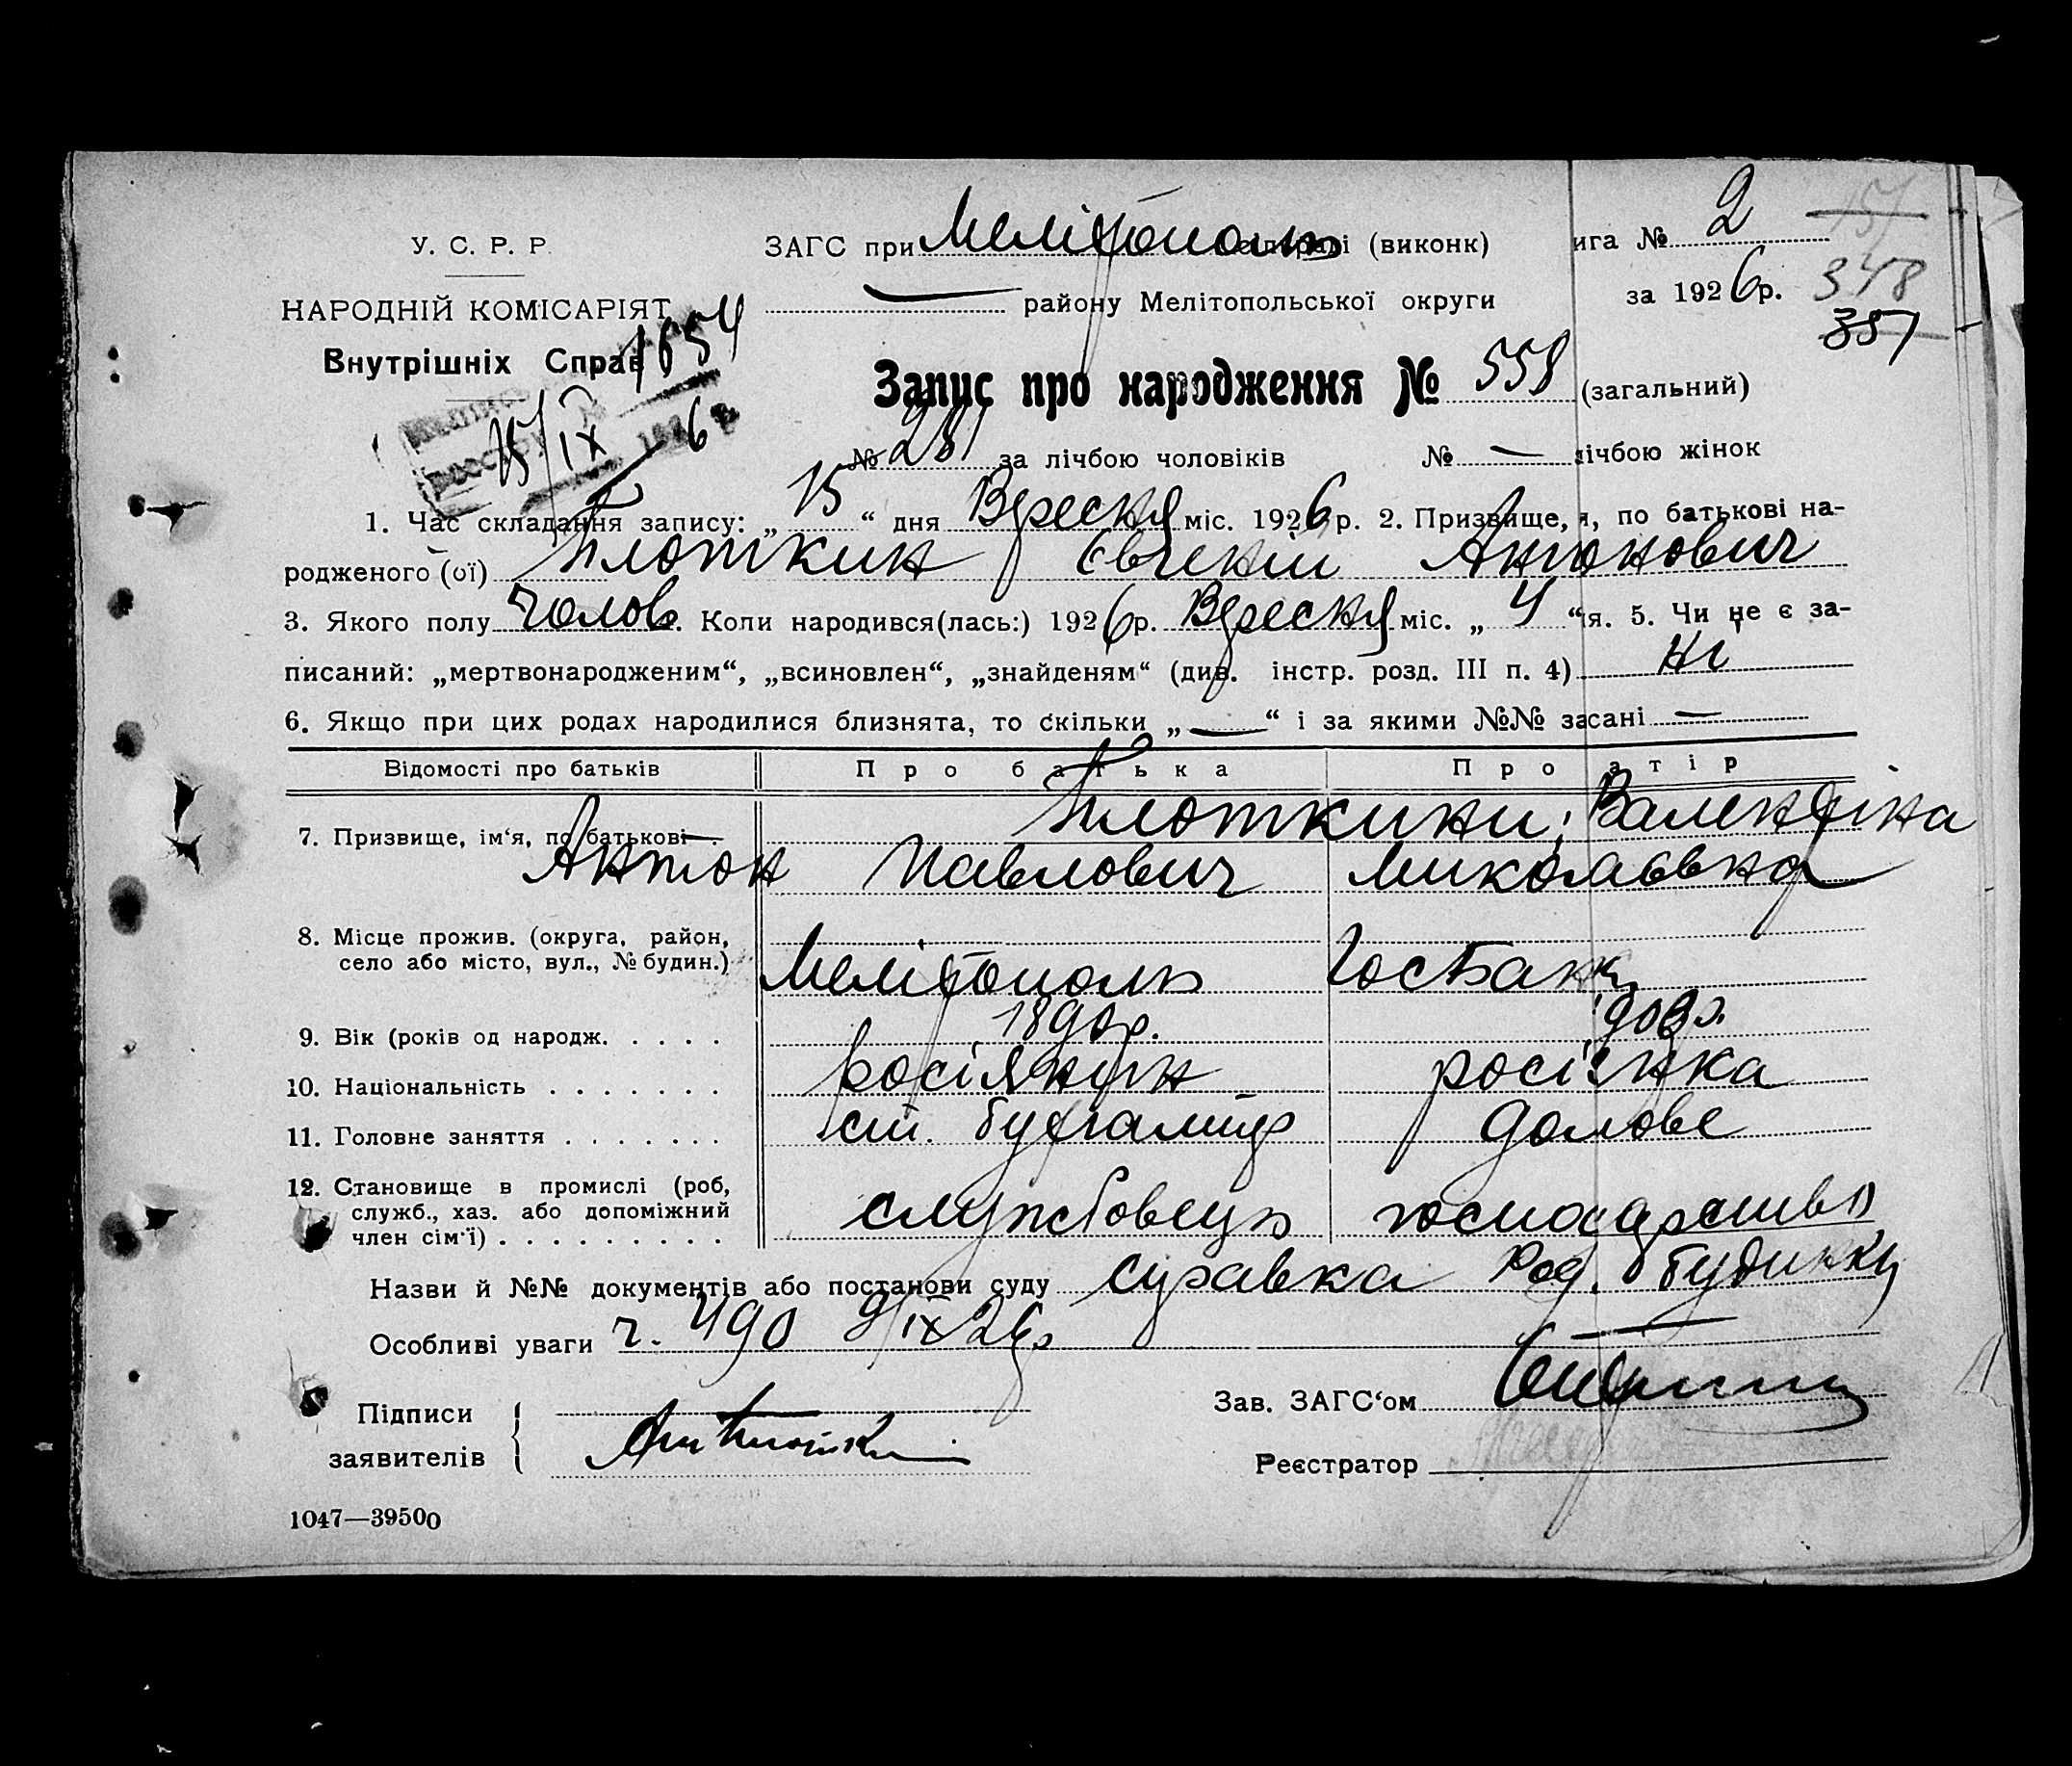 У. С. Р. Р.
ЗАГС при Мелітополь (виконк)
ига № 2
НАРОДНІЙ КОМІСАРІЯТ
— району Мелітопольської округи
за 1926 р.
348
351
Внутрішніх Справ
1654
Запис про народження № 558 (загальний)
15/IX 1926 р.
№ 281 за лічбою чоловіків № — лічбою жінок
1. Час складання запису: „15“ дня Вересня міс. 1926 р. 2. Призвище, я, по батькові на-
родженого (ої) Плоткин Євгеній Антонович
3. Якого полу чолов. Коли народився(лась:) 1926 р. Вересня міс. „4“ я. 5. Чи не є за-
писаний: „мертвонародженим“, „всиновлен“, „знайденям“ (див. інстр. розд. III п. 4) ні
6. Якщо при цих родах народилися близнята, то скільки „—“ і за якими №№ засані —
Відомості про батьків Про батька Про атір
7. Призвище, ім‘я, по батькові Плоткини; Валентіна
Антон Павлович Миколаєвна
8. Місце прожив. (округа, район,
село або місто, вул., № будин.) Мелітополь ГосБанк
9. Вік (років од народж. 1890 р. 1903 р.
10. Національність росіянин росіянка
11. Головне заняття ст. бухгалтер домове
12. Становище в промислі (роб,
служб., хаз. або допоміжний
член сім‘ї) службовець господарство
Назви й №№ документів або постанови суду справка Род. будинку
Особливі уваги ч. 490 9/IX 26 р —
Підписи
заявителів
Зав. ЗАГС‘ом
Реєстратор
1047—39500